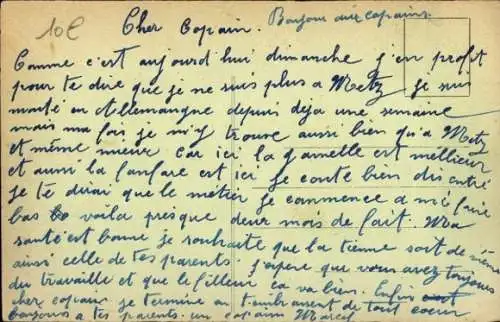 10€
Cher Copain. Bonjour aux copains.
Comme c'est aujourd'hui dimanche j'en profit
pour te dire que je ne suis plus a Metz je suis
monté en Allemangne depuis déja une semaine
mais ma fois je m'y trouve aussi bien qu'a Metz
et même mieux car ici la gamelle est meilleur
et aussi la fanfare est ici je conte bien dis entré
je te dirai que le métier je commence a m'i faire
bas voila presque deux mois de fait. Ma
santé est bonne je souhaite que la tienne soit de même
ainsi celle de tes parents. j'espere que vous avez toujours
du travaille et que le filleur ca va bien. Enfin
cher copain je termine en t'embrasent de tout coeur
bonjours a tes parents. un copain Marcel